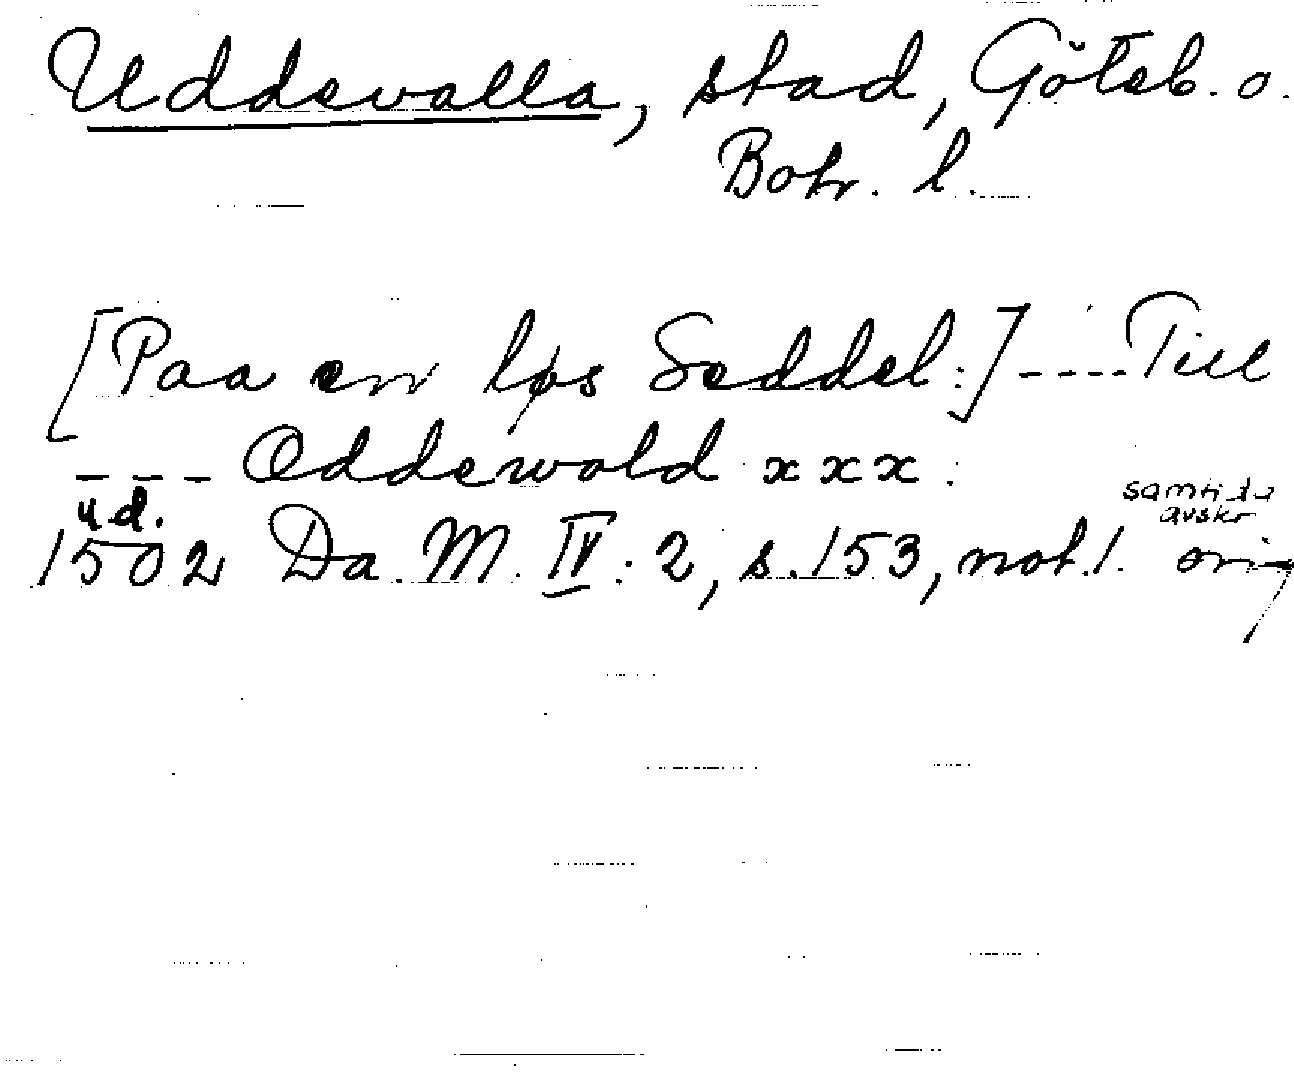 Uddevalla, stad, Göteb. o.
Boh. l.
[Paa en løs Seddel:] ---- Till
--- Oddewold x x x.
u d. samtida
avskr
1502 Da. M. IV: 2, s. 153, not. 1. orig